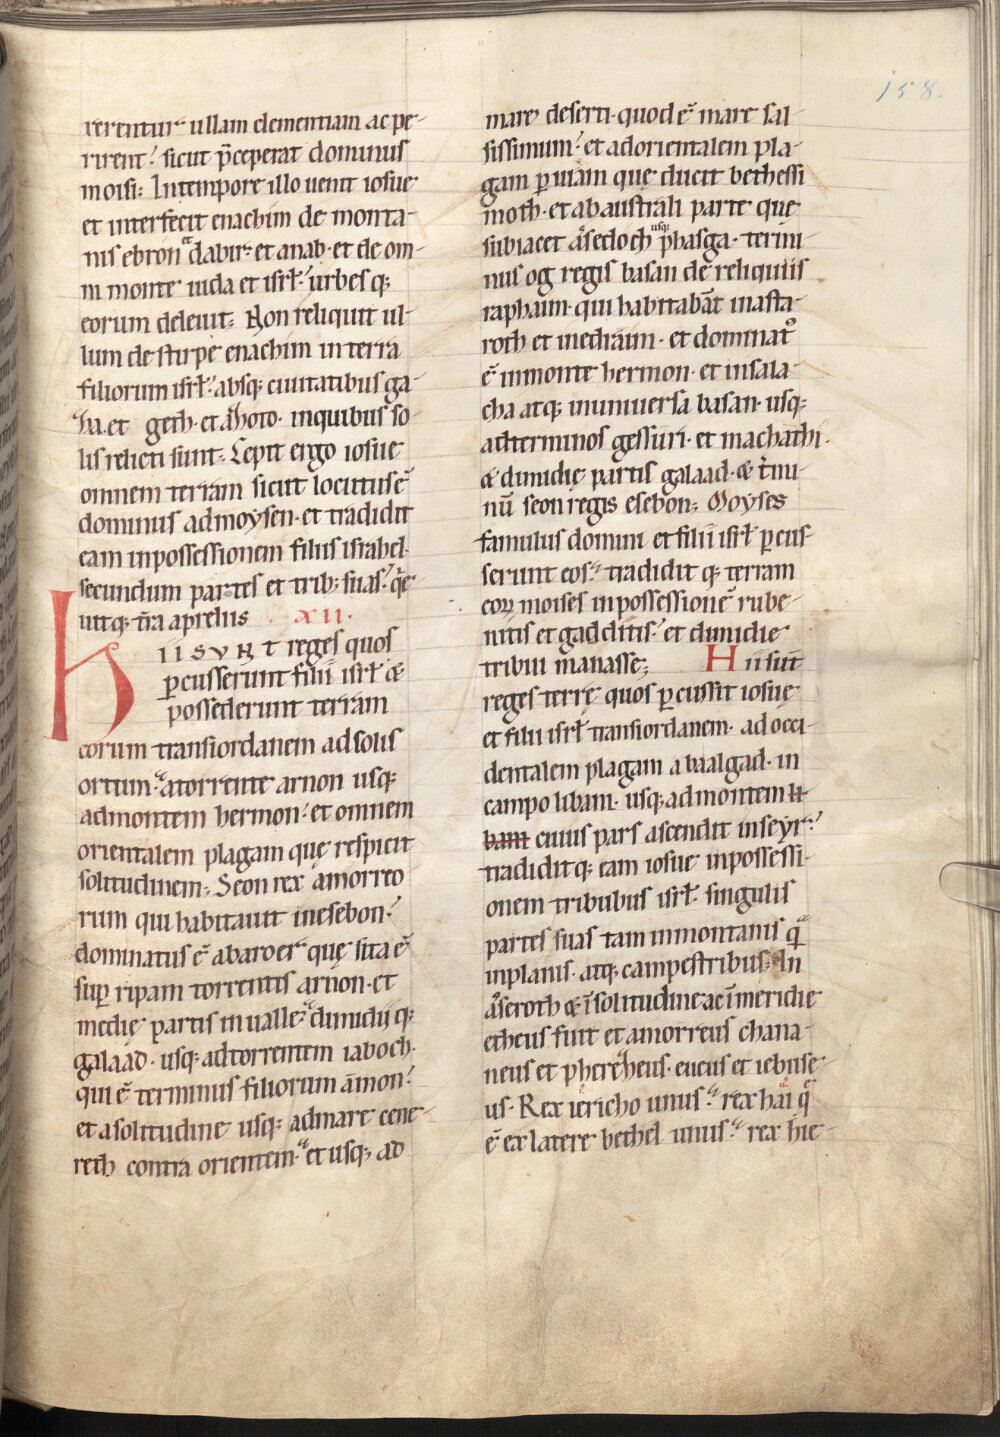 158.
rerentur ullam clementiam ac pe-
rirent? sicut p̄ceperat dominus
moisi; In tempore illo uenit iosue
et interfecit enachim de monta-
nis ebron et dabir et anab et de om-
ni monte iuda et isrł urbesq;
eorum deleuit; Non reliquit ul-
lum de stirpe enachim in terra
filiorum isrł absq; ciuitatibus ga-
za et geth et azhoto in quibus so-
lis relicti sunt; Cepit ergo iosue
omnem terram sicut locutus ē
dominus ad moysen et tradidit
eam in possessionem filiis israhel
secundum partes et trib; suas q̄e-
uitq; t̄ra a preliis XII.
Hii sunt reges quos
ꝑcusserunt filii isrł &
possederunt terram
eorum transiordanem ad solis
ortum a torrente arnon usq;
ad montem hermon et omnem
orientalem plagam quę respicit
solitudinem; Seon rex amorreo
rum qui habitauit in esebon
dominatus ē ab aroer quę sita ē
suꝑ ripam torrentis arnon et
medię partis in ualle dimidiiq;
galaad usq; ad torrentem iaboch
qui ē terminus filiorum āmon
et a solitudine usq; ad mare cene-
reth contra orientem et usq; ad
mare deserti quod ē mare sal-
sissimum et ad orientalem pla-
gam ꝑ uiam que ducit bethessi
moth et ab australi parte que
subiacet asedoch usq; phasga termi-
nus og regis basan de reliquiis
raphaim qui habitabāt in asta-
roth et in edraim et dominat᷒
ē in monte hermon et in sala-
cha atq; in uniuersa basan usq;
ad terminos gessuri et machathi
& dimidię partis galaad & t̄mi-
nū seon regis esebon; Moyses
famulus domini et filii isrł ꝑcus-
serunt eos tradiditq; terram
eoꝝ moises in possessionē rube-
nitis et gadditis et dimidie
tribui manasse; Hii sūt
reges terrę quos ꝑcussit iosuę
et filii isrł transiordanem ad occi-
dentalem plagam a baalgad in
campo libani usq; ad montem li-
bani cuius pars ascendit in seyr
tradiditq; eam iosue in possessi-
onem tribubus isrł singulis
partes suas tam in montanis q̄
in planis atq; campestribus; In
aseroth & ī solitudine ac ī meridie
etheus fuit et amorreus chana-
neus et pherezheus eueus et iebuse-
us Rex iericho unus rex hai q̄
ē ex latere bethel unus rex hie-